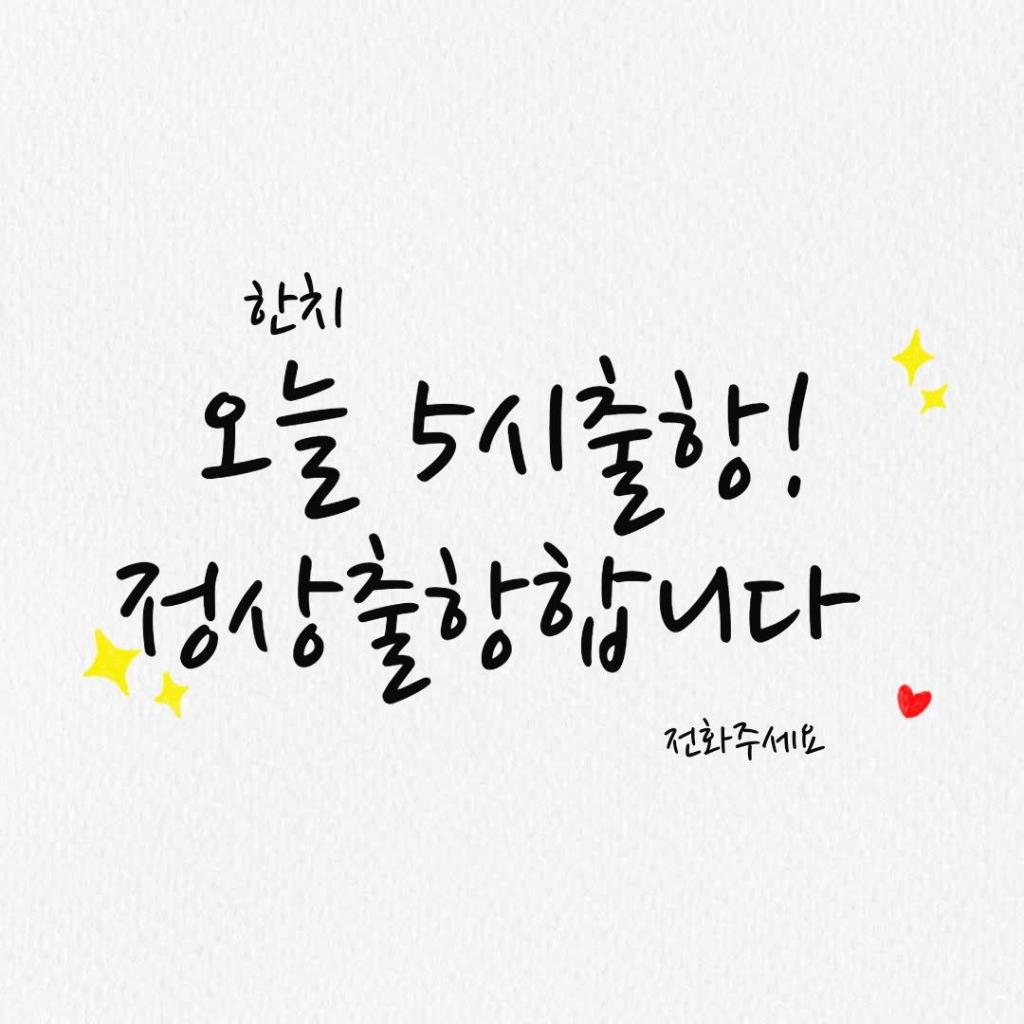 한치
오늘 5시출항!
정상출항합니다
전화주세요